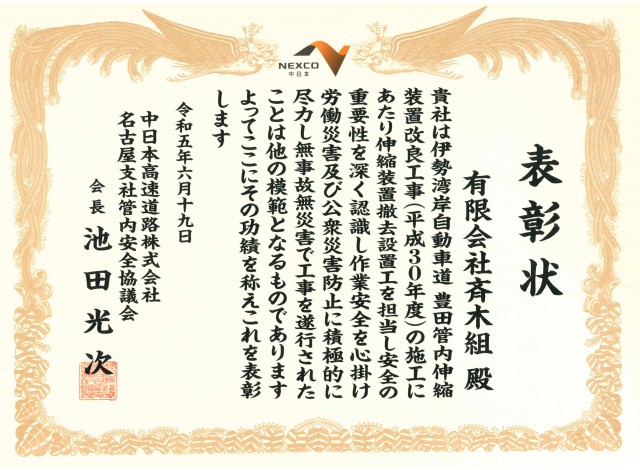 NEXCO
中日本
表彰状
有限会社斉木組 殿
貴社は伊勢湾岸自動車道 豊田管内伸縮
装置改良工事(平成30年度)の施工に
あたり伸縮装置撤去設置工を担当し安全の
重要性を深く認識し作業安全を心掛け
労働災害及び公衆災害防止に積極的に
尽力し無事故無災害で工事を遂行された
ことは他の模範となるものであります
よってここにその功績を称えこれを表彰
します
令和五年六月十九日
中日本高速道路株式会社
名古屋支社管内安全協議会
会長 池田光次